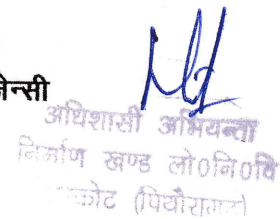 जेन्सी
अधिशासी अभियन्ता
निर्माण खण्ड लो०नि०वि
कोट (पिथौरागढ़)